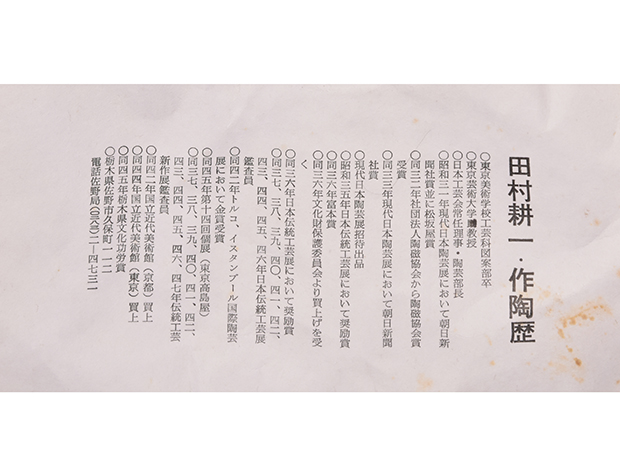 田村耕一・作陶歴
○東京美術学校工芸科図案部卒
○東京芸術大学教授
○日本工芸会常任理事・陶芸部長
○昭和三一年現代日本陶芸展において朝日新
聞社賞並に松坂屋賞
○同三二年社団法人陶磁協会から陶磁協会賞
受賞
○同三三年現代日本陶芸展において朝日新聞
社賞
○現代日本陶芸展招待出品
○昭和三五年日本伝統工芸展において奨励賞
○同三六年富本賞
○同三六年文化財保護委員会より買上げを受
く
○同三六年日本伝統工芸展において奨励賞
○同三七、三八、三九、四〇、四一、四二、
四三、四四、四五、四六年日本伝統工芸展
鑑査員
○同四二年トルコ、イスタンブール国際陶芸
展において金賞受賞
○同四五年第十四回個展（東京高島屋）
○同三七、三八、三九、四〇、四一、四二、
四三、四四、四五、四六、四七年伝統工芸
新作展鑑査員
○同四二年国立近代美術館（京都）買上
○同四四年国立近代美術館（東京）買上
○同四五年栃木県文化功労賞
○栃木県佐野市久保町一一二
電話佐野局 二―四七三一